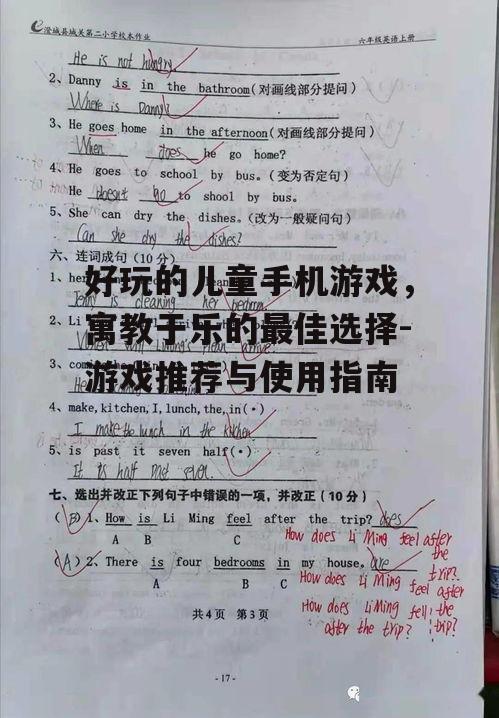 澄城县城关第二小学校本作业 六年级英语上册
He is not hungry
2、Danny is in the bathroom(对画线部分提问)
Where is Danny?
3、He goes home in the afternoon(对画线部分提问)
When does he go home?
4、He goes to school by bus.(变为否定句)
He doesn't go to shool by bus.
5、She can dry the dishes.(改为一般疑问句)
Can she dry the dishes?
六、连词成句(10分)
好玩的儿童手机游戏，
寓教于乐的最佳选择-
游戏推荐与使用指南
1、her
Jenny is cleaning her bedroom
2、Li
3、com
4、make,kitchen,I,lunch,the,in(•)
I make the lunch in the kitchen
5、is past it seven half(•)
It is half past seven.
七、选出并改正下列句子中错误的一项，并改正(10分)
(B)1、How is Li Ming feel after the trip? does
A B C
How does Li Ming feel after the trip?
(A)2、There is four bedrooms in my house. are
A B C
How does Li Ming feel after the trip?
How does Li Ming fell after the trip?
共4页 第3页
-17-